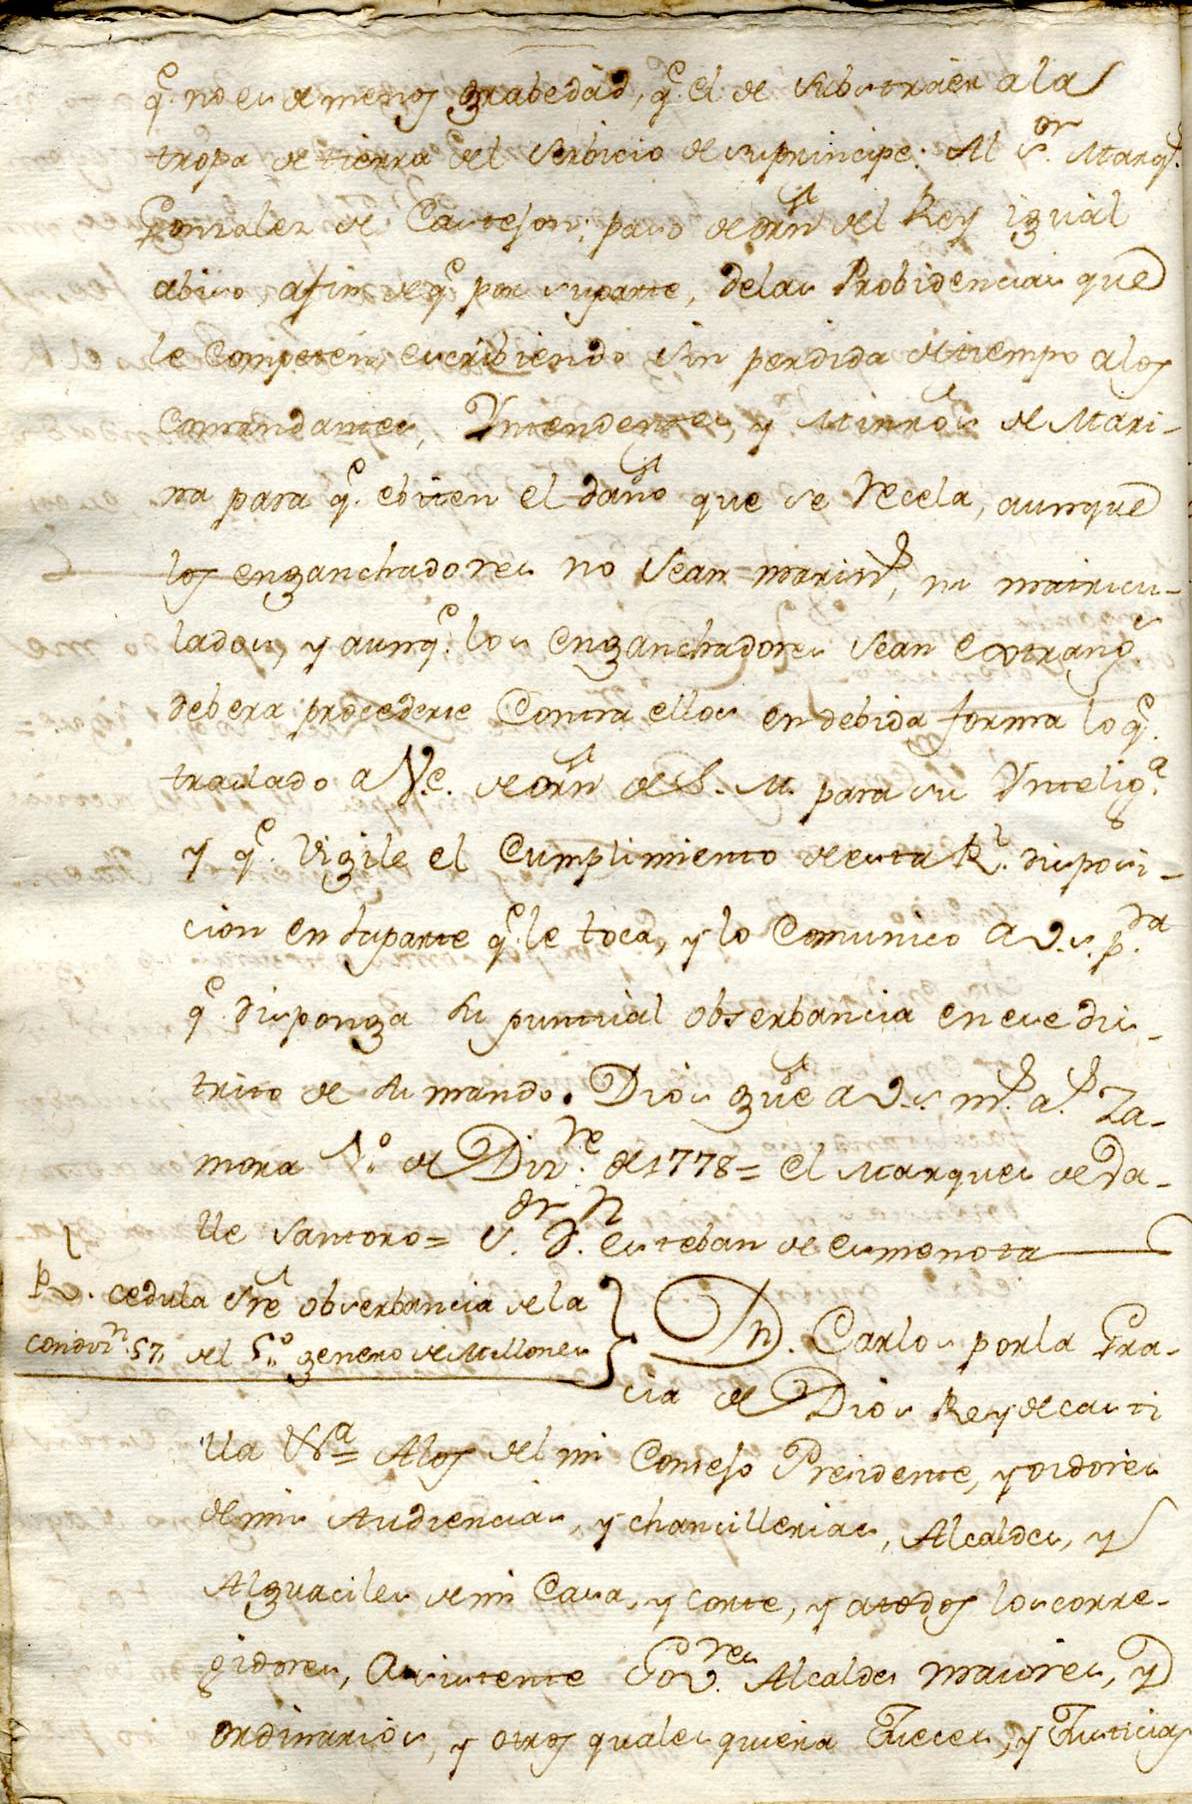 q.e no es de menos grabedad, q.e el de substraer a la
tropa de tierra del serbicio de su principe. Al S.or Marq.s
Gonzalez de Castejon; paso de orn del Rey igual
abiso, afin de q.e por su parte, de las Probidencias que
le competen, escribiendo sin perdida de tiempo a los
Comandantes, Yntendentes, y Minros de Mari-
na para q.e ebiten el daño que se recela, aunque
los enganchadores no sean marin.s, ni matricu-
lados, y aunq.e los enganchadores sean extrang.s
debera procederse contra ellos en debida forma lo q.e
traslado a V.e. de orn de S. M. para su Yntelig.a
y q.e vigile el cumplimiento de esta R.l disposi-
cion en su parte q.e le toca, y lo comunico a V.s. p.ra
q.e disponga su puntual obserbancia en ese dis-
trito de su mando. Dios gue a V.s. m.s a.s Za-
mora 1.o de Diz.re de 1778= el Marques de Va-
lle santoro= S.or D.n Esteban de esmenota
R.l cedula sre obserbancia de la
condiz.n 57, del 5.o genero de Millones
Dn. Carlos por la Gra-
cia de Dios Rey de casti
lla &.a= Alos del mi Consejo Presidente, y oidores
de mis Audiencias, y chancillerias, Alcaldes, y
Alguaciles de mi Casa, y corte, y atodos los corre-
gidores, Asistente Gov.res Alcaldes maiores, y
ordinarios, y otros quales quiera Jueces, y Justicias